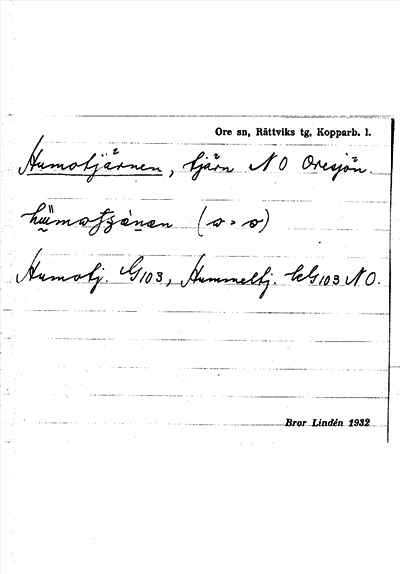 Ore sn, Rättviks tg, Kopparb. l.
Humotjärnen, tjärn NO Oresjön.
Humotj. G103, Hummeltj. kG103 NO.
Bror Lindén 1932